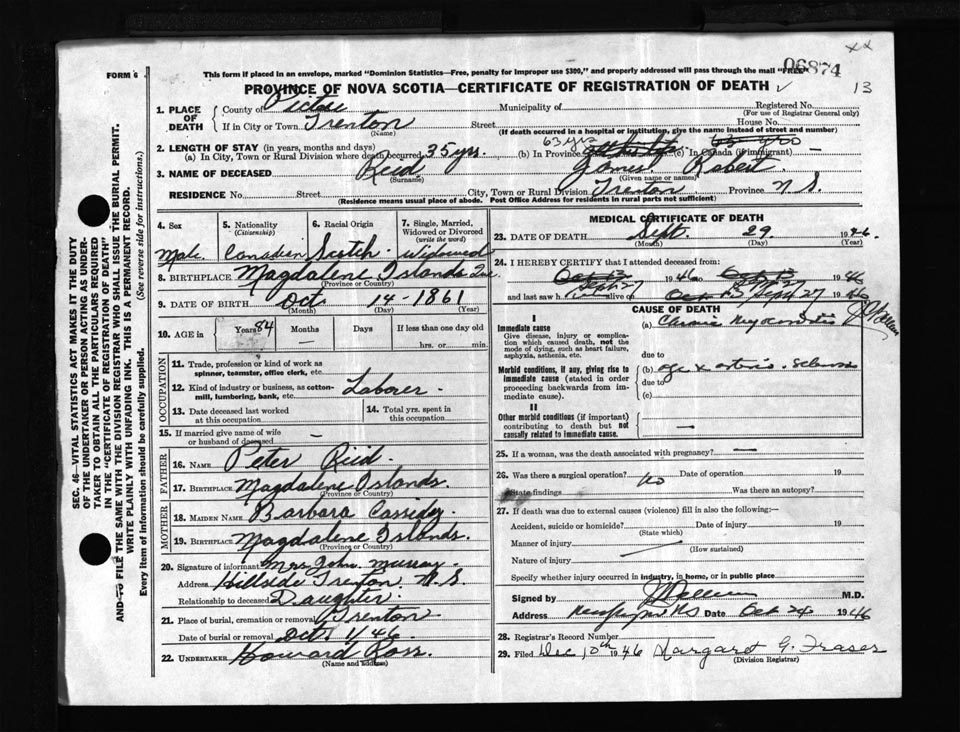 xx
06874
13
FORM 6
This form if placed in an envelope, marked "Dominion Statistics—Free, penalty for improper use $300," and properly addressed will pass through the mail "FREE"
PROVINCE OF NOVA SCOTIA—CERTIFICATE OF REGISTRATION OF DEATH
1. PLACE OF DEATH County of Pictou Municipality of Registered No.
(For use of Registrar General only)
If in City or Town Trenton Street House No.
(Name) (If death occurred in a hospital or institution, give the name instead of street and number)
2. LENGTH OF STAY (in years, months and days) 63 yrs
(a) In City, Town or Rural Division where death occurred 35 yrs. (b) In Province (c) In Canada (if immigrant) —
3. NAME OF DECEASED Reid James Robert
(Surname) (Given name or names)
RESIDENCE No. Street City, Town or Rural Division Trenton Province N.S.
(Residence means usual place of abode. Post Office Address for residents in rural parts not sufficient)
4. Sex 5. Nationality (Citizenship) 6. Racial Origin 7. Single, Married, Widowed or Divorced (write the word)
Male. Canadian Scotch Widowed
8. BIRTHPLACE Magdalene Islands Que
(Province or Country)
9. DATE OF BIRTH Oct 14 - 1861
(Month) (Day) (Year)
10. AGE in Years 84 Months Days If less than one day old
— hrs. or min.
OCCUPATION
11. Trade, profession or kind of work as spinner, teamster, office clerk, etc.
12. Kind of industry or business, as cotton-mill, lumbering, bank, etc. Laborer.
13. Date deceased last worked at this occupation 14. Total yrs. spent in this occupation
15. If married give name of wife or husband of deceased —
FATHER
16. NAME Peter Reid.
17. BIRTHPLACE Magdalene Islands.
(Province or Country)
MOTHER
18. MAIDEN NAME Barbara Cassidy
19. BIRTHPLACE Magdalene Islands.
(Province or Country)
20. Signature of informant Mrs John Murray
Address Hillside Trenton N.S.
Relationship to deceased Daughter.
21. Place of burial, cremation or removal Trenton
Date of burial or removal Oct 1/46
22. UNDERTAKER Howard Ross.
(Name and address)
MEDICAL CERTIFICATE OF DEATH
23. DATE OF DEATH Sept. 29 1946.
(Month) (Day) (Year)
24. I HEREBY CERTIFY that I attended deceased from:
Oct 13 1946 to Oct 13 1946
Sept 27
and last saw h alive on Oct 13 Sept 27 1946
CAUSE OF DEATH
I
Immediate cause
Give disease, injury or complication which caused death, not the mode of dying, such as heart failure, asphyxia, asthenia, etc.
(a) Chronic Myocarditis
due to
Morbid conditions, if any, giving rise to immediate cause (stated in order proceeding backwards from immediate cause).
(b) age &
due to
(c)
II
Other morbid conditions (if important) contributing to death but not causally related to immediate cause. —
25. If a woman, was the death associated with pregnancy? —
26. Was there a surgical operation? no Date of operation 19
State findings Was there an autopsy?
27. If death was due to external causes (violence) fill in also the following:—
Accident, suicide or homicide? Date of injury 19
(State which)
Manner of injury
(How sustained)
Nature of injury
Specify whether injury occurred in industry, in home, or in public place
Signed by M.D.
Address NS Date Oct 24 1946
28. Registrar's Record Number
29. Filed Dec 10th 1946 Margaret G. Fraser
(Division Registrar)
SEC. 46—VITAL STATISTICS ACT MAKES IT THE DUTY
OF THE UNDERTAKER OR PERSON ACTING AS UNDERTAKER TO OBTAIN ALL THE PARTICULARS REQUIRED
IN THE "CERTIFICATE OF REGISTRATION OF DEATH"
AND TO FILE THE SAME WITH THE DIVISION REGISTRAR WHO SHALL ISSUE THE BURIAL PERMIT.
WRITE PLAINLY WITH UNFADING INK. THIS IS A PERMANENT RECORD.
Every item of information should be carefully supplied. (See reverse side for instructions.)